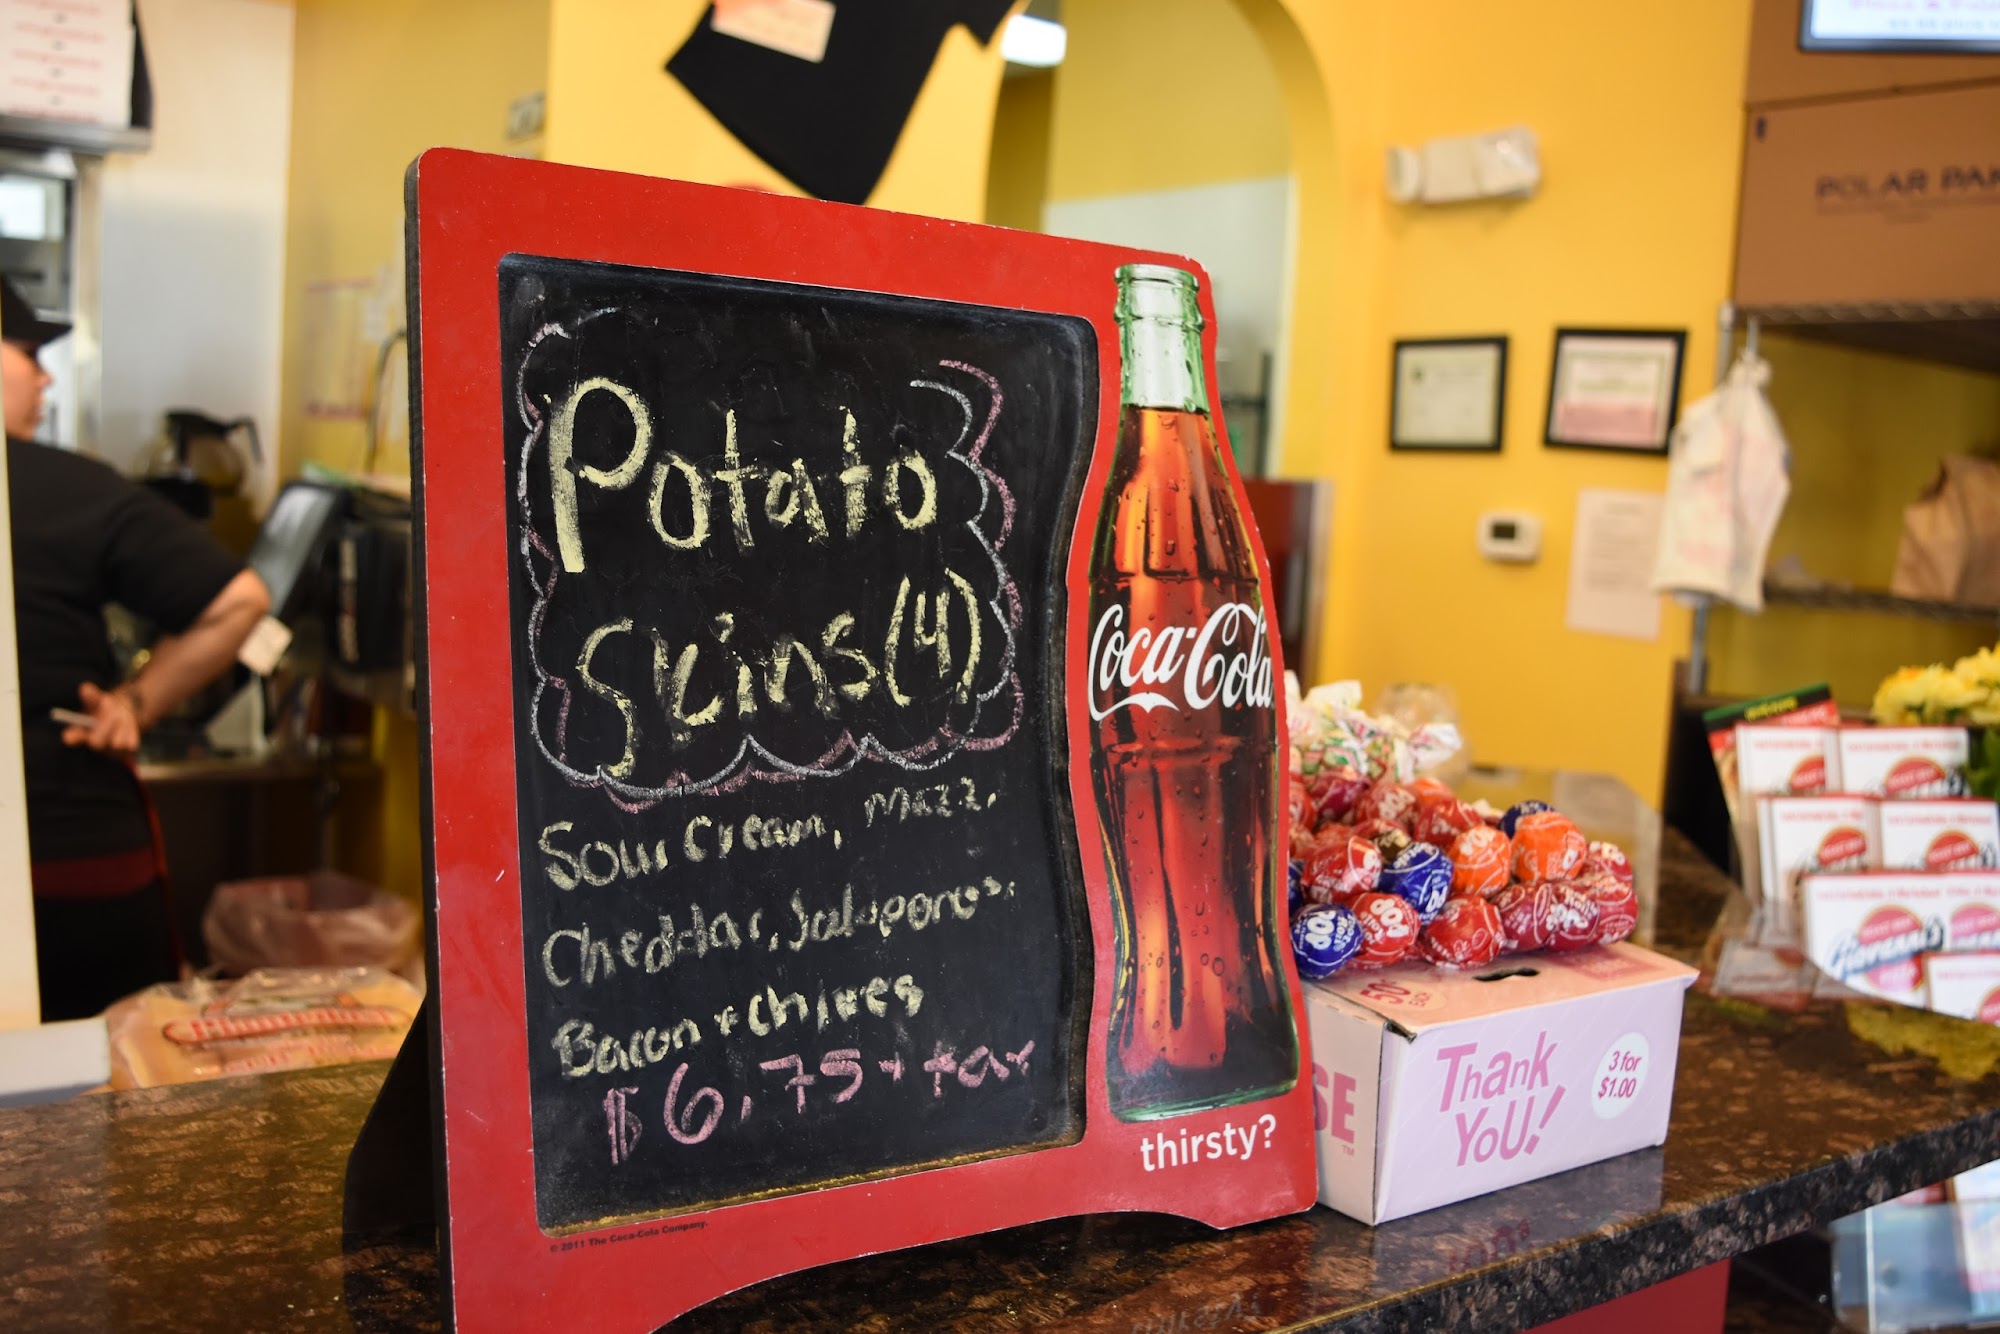 Potato
Skins (4)
Sour Cream, Mozz,
Cheddar, Jalaporenos,
Bacon + Chives
$6.75 + tax
Coca-Cola
thirsty?
© 2011 The Coca-Cola Company.
POLAR PAK
POP
POP
50¢
Thank
YOU!
3 for
$1.00
SE
TM
Giovanni's